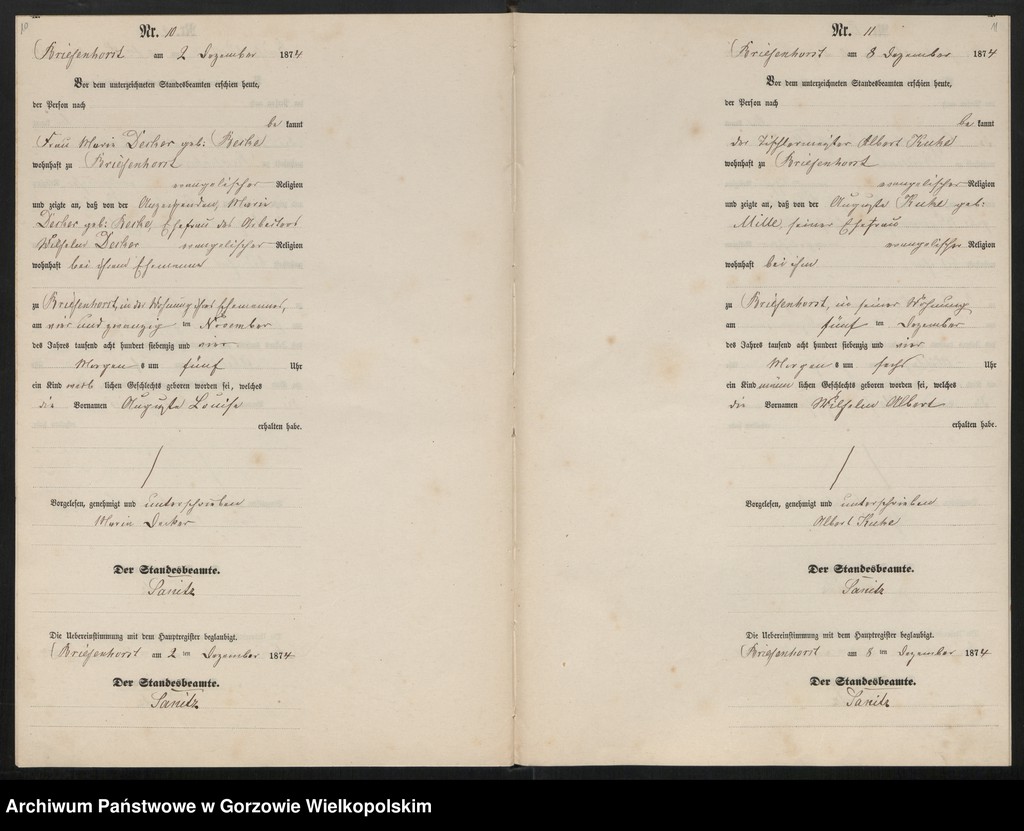 10
Nr. 10
Briesenhorst am 2 Dezember 1874
Vor dem unterzeichneten Standesbeamten erschien heute,
der Person nach
be kannt
Frau Maria Decker geb:
wohnhaft zu Briesenhorst
evangelischer Religion
und zeigte an, daß von der Anzeigenden, Maria
Decker geb: Ehefrau des Arbeiters
Wilhelm Decker evangelischer Religion
wohnhaft bei ihrem Ehemanne
zu Briesenhorst, in der Wohnung ihres Ehemannes,
am vier und zwanzig ten November
des Jahres tausend acht hundert siebenzig und vier
Morgen s um fünf Uhr
ein Kind weib lichen Geschlechts geboren worden sei, welches
die Vornamen Auguste Louise
erhalten habe.
Vorgelesen, genehmigt und unterschrieben
Maria Decker
Der Standesbeamte.
Sanitz
Die Uebereinstimmung mit dem Hauptregister beglaubigt.
Briesenhorst am 2 ten Dezember 1874
Der Standesbeamte.
Sanitz
11
Nr. 11
Briesenhorst am 8 Dezember 1874
Vor dem unterzeichneten Standesbeamten erschien heute,
der Person nach
be kannt
der Tischlermeister Albert
wohnhaft zu Briesenhorst
evangelischer Religion
und zeigte an, daß von der Auguste geb:
Mille, seiner Ehefrau
evangelischer Religion
wohnhaft bei ihm
zu Briesenhorst, in seiner Wohnung
am fünf ten Dezember
des Jahres tausend acht hundert siebenzig und vier
Morgen s um sechs Uhr
ein Kind männ lichen Geschlechts geboren worden sei, welches
die Vornamen Wilhelm Albert
erhalten habe.
Vorgelesen, genehmigt und unterschrieben
Albert
Der Standesbeamte.
Sanitz
Die Uebereinstimmung mit dem Hauptregister beglaubigt.
Briesenhorst am 8 ten Dezember 1874
Der Standesbeamte.
Sanitz
Archiwum Państwowe w Gorzowie Wielkopolskim